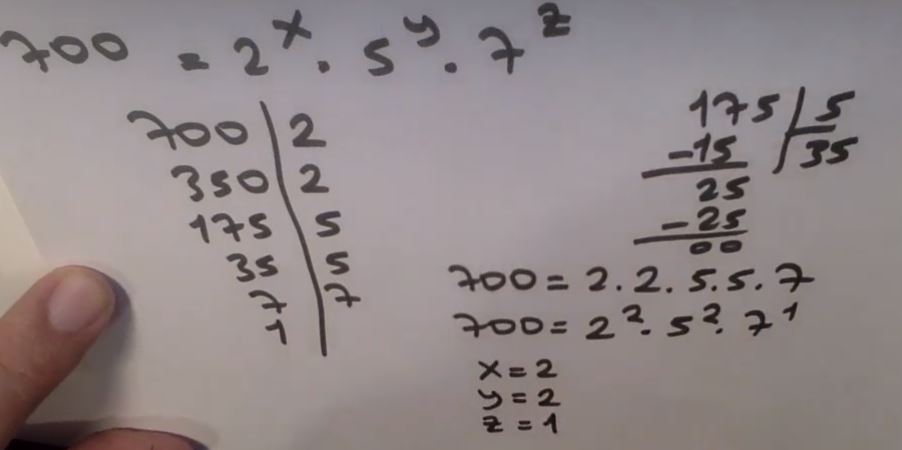 700 = 2^x . 5^y . 7^z
700 | 2
350 | 2
175 | 5
35 | 5
7 | 7
1 |
175 / 5
-15 / 35
25
-25
00
700 = 2 . 2 . 5 . 5 . 7
700 = 2^2 . 5^2 . 7^1
x = 2
y = 2
z = 1